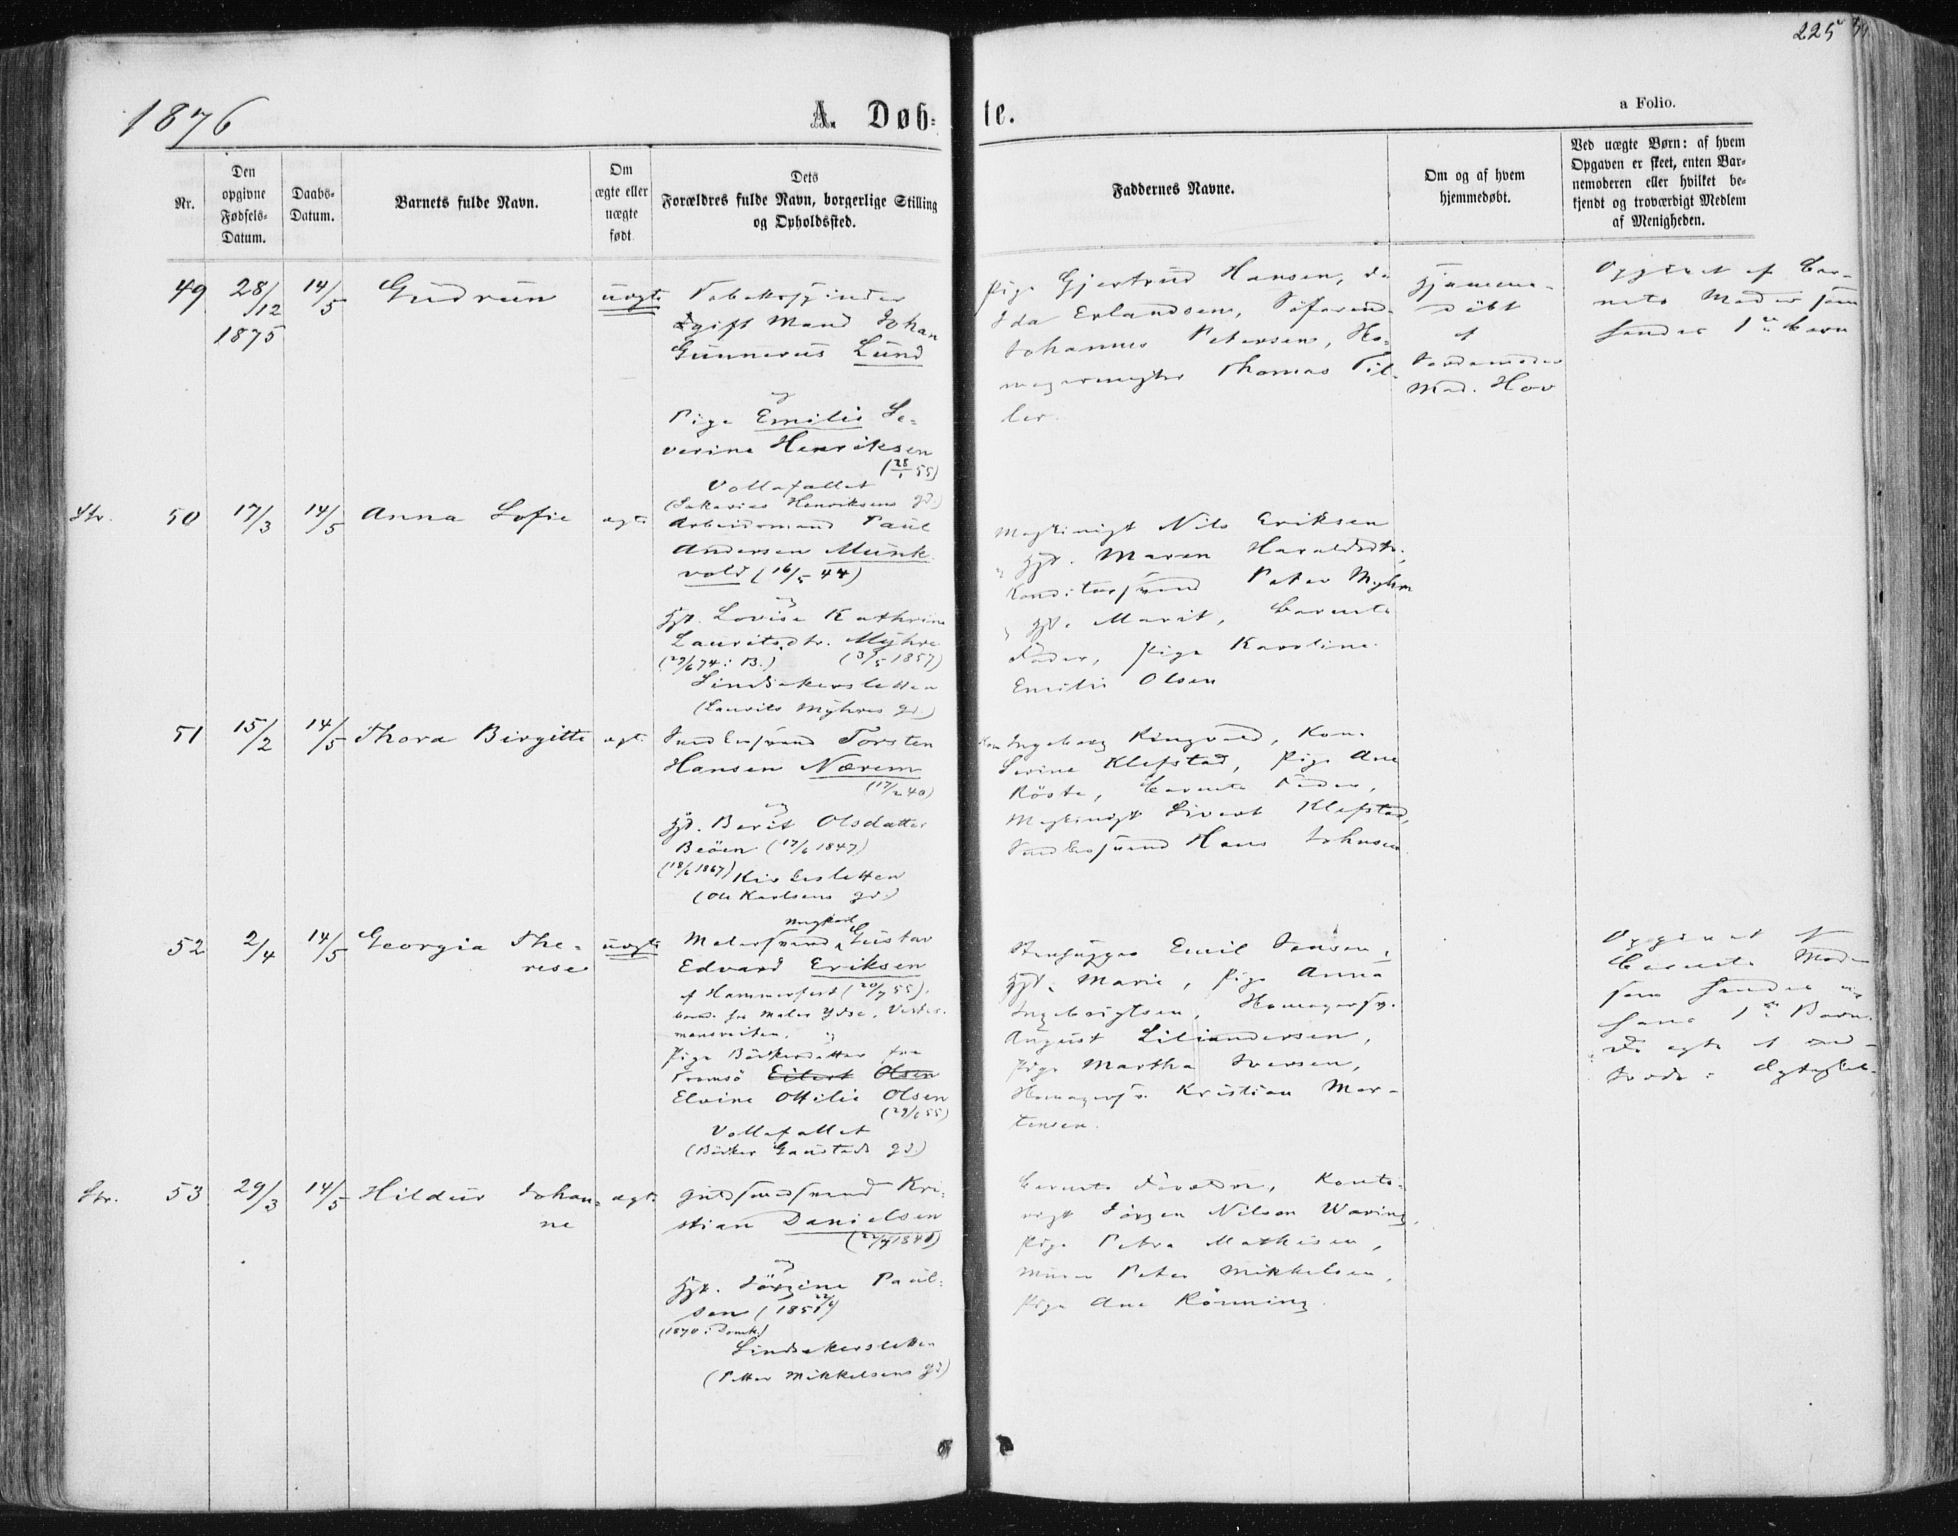 225
1876
A. Døb-
te.
a Folio.
Nr.
Den
opgivne
Fødsels-
Datum.
Daabs-
Datum.
Barnets fulde Navn.
Om
ægte eller
uægte
født.
Dets
Forældres fulde Navn, borgerlige Stilling
og Opholdssted.
Faddernes Navne.
Om og af hvem
hjemmedøbt.
Ved uægte Børn: af hvem
Opgaven er skeet, enten Bar-
nemoderen eller hvilket be-
kjendt og troværdigt Medlem
af Menigheden.
49
28/12
1875
14/5
Gudrun
uægte
Tobakspinder
ugift Mand Johan
Gunnerus Lund
og
Pige Emilie Se-
verine Henriksen
(28/1 55)
Vollafallet
(Sakarias Henriksens gd.)
Pige Gjertrud Hansen, do
Ida Erlandsen, Søfarend.
Johannes Petersen, Ho-
magersvend Thomas Til-
ler.
Hjemme-
døbt
af
Jordemoder
Mad. Hov
Opgivet af Bar-
nets Moder som
hendes 1te Barn
Str.
50
17/3
14/5
Anna Sofie
ægte
Arbeidsmand Paul
Andersen Munk-
vold (16/5 44)
og
Hst. Lovise Kathrine
Lauritsdtr. Myhre
(29/6 74 i B.) (3/5 1857)
Lindsakersletten
(Laurits Myhres gd.)
Nils Eriksen
Hst. Maren Haraldsdtr.
Konditorsvend Peter Myhre
Hst. Marit, Barnets
Fader, Pige Karoline
Emilie Olsen
51
15/2
14/5
Thora Birgitte
ægte
Snedkersvend Torsten
Hansen Nærem
(17/2 40)
og
Hst. Berit Olsdatter
Beöen (17/6 1847)
(18/6 1867) Kirkesletten
(Ole Karlsens gd.)
Kon Ingeborg Ringvold, Kon.
Serine Klefstad, Pige Ane
Röste, Barnets Fader,
Sivert Klefstad,
Snedkersvend Hans Johnsen
52
2/4
14/5
Georgia The-
rese
uægte
Ungkarl
Malersvend Gustav
Edvard Eriksen
af Hammerfest (20/7 55).
Maler Ydse, Vester-
mansveiten,
og
Pige Bödkerdatter fra
Tromsö Eilert Olsen
Elvine Ottilie Olsen
(29/6 55)
Vollafallet
(Bödker Gaustads gd.)
Stenhugger Emil Jensen,
Hst. Marie, Pige Anna
Ingebrigtsen, Homagersv.
August Liliandersen,
Pige Martha Iversen,
Homagersv. Kristian Mor-
tensen.
Opgivet af
Barnets Moder
som hendes og
hans 1te Barn.
De agte at ind-
træde i Ægteskab.
Str.
53
29/3
14/5
Hildur Johan-
ne
ægte
Guldsmedsvend Kri-
stian Danielsen
(27/4 1848)
og
Hst. Jörgine Paul-
sen (1851 22/4)
(1870 i Domk.)
Lindsakersletten
(Petter Mikkelsens gd)
Barnets Forældre, Konto-
rist Jörgen Nilsen Waring,
Pige Petra Mathisen,
Murer Peter Mikkelsen,
Pige Ane Rönning.